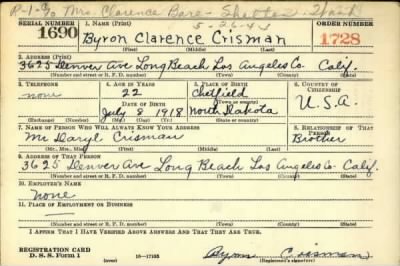 P-1-% Mrs. Clarence Bare - Wash
5-26-43
SERIAL NUMBER 1. NAME (Print) ORDER NUMBER
1690 Byron Clarence Crisman 1728
(First) (Middle) (Last)
2. ADDRESS (Print)
3625 Denver Ave Long Beach Los Angeles Co. Calif.
(Number and street or R. F. D. number) (Town) (County) (State)
3. TELEPHONE 4. AGE IN YEARS 5. PLACE OF BIRTH 6. COUNTRY OF CITIZENSHIP
none 22 Chetfield
DATE OF BIRTH (Town or county)
July 8 1918 North Dakota U.S.A.
(Exchange) (Number) (Mo.) (Day) (Yr.) (State or country)
7. NAME OF PERSON WHO WILL ALWAYS KNOW YOUR ADDRESS 8. RELATIONSHIP OF THAT PERSON
Mr. Daryl Crisman Brother
(Mr., Mrs., Miss) (First) (Middle) (Last)
9. ADDRESS OF THAT PERSON
3625 Denver Ave Long Beach Los Angeles Co. Calif.
(Number and street or R. F. D. number) (Town) (County) (State)
10. EMPLOYER'S NAME
none
11. PLACE OF EMPLOYMENT OR BUSINESS
(Number and street or R. F. D. number) (Town) (County) (State)
I AFFIRM THAT I HAVE VERIFIED ABOVE ANSWERS AND THAT THEY ARE TRUE.
REGISTRATION CARD
D. S. S. Form 1 16—17105 Byron Crisman
(Registrant's signature)